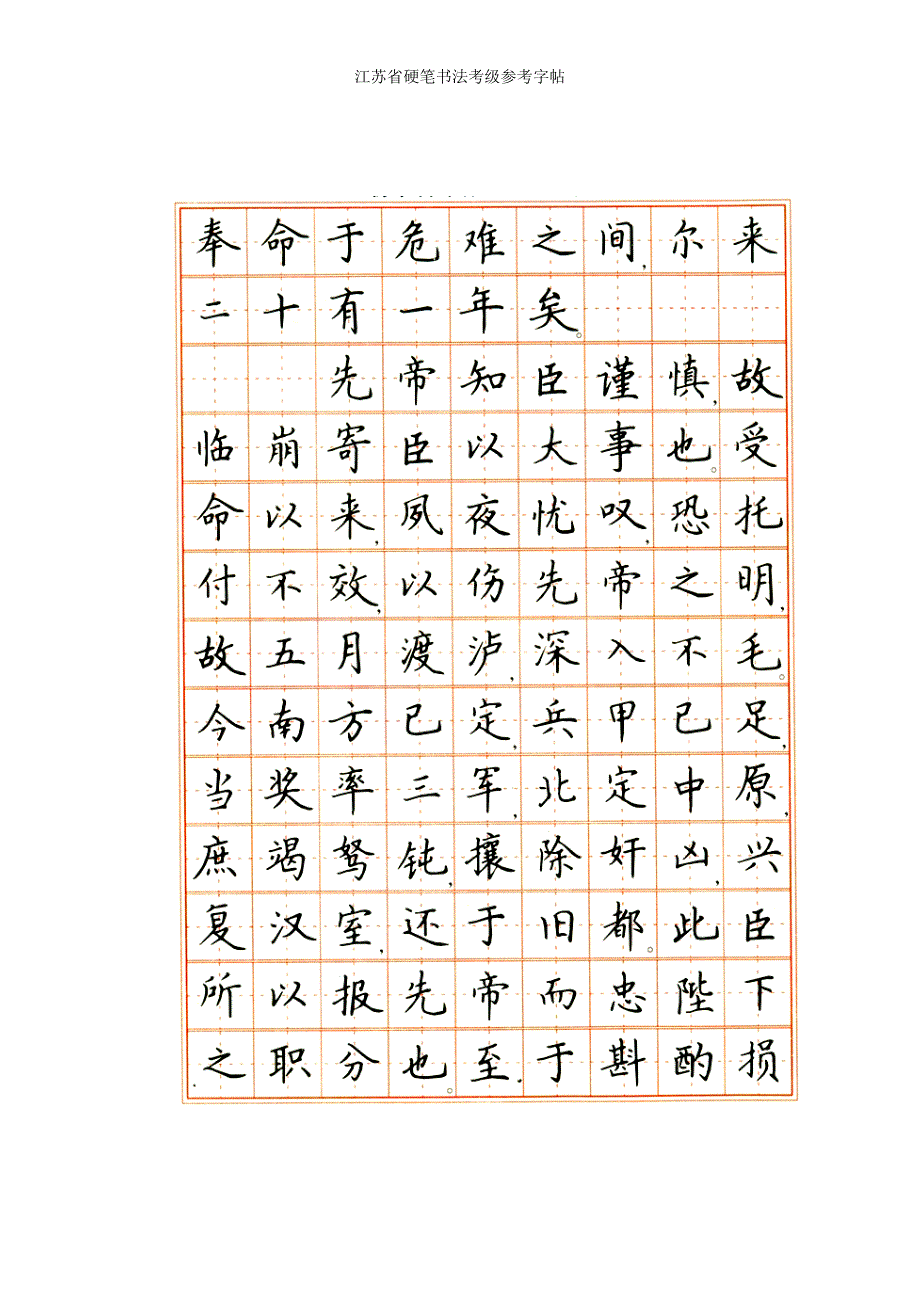 江苏省硬笔书法考级参考字帖
奉命于危难之间,尔来
二十有一年矣。
先帝知臣谨慎,故
临崩寄臣以大事也。受
命以来,夙夜忧叹,恐托
付不效,以伤先帝之明,
故五月渡泸,深入不毛。
今南方已定,兵甲已足,
当奖率三军,北定中原,
庶竭驽钝,攘除奸凶,兴
复汉室,还于旧都。此臣
所以报先帝而忠陛下
之职分也。至于斟酌损